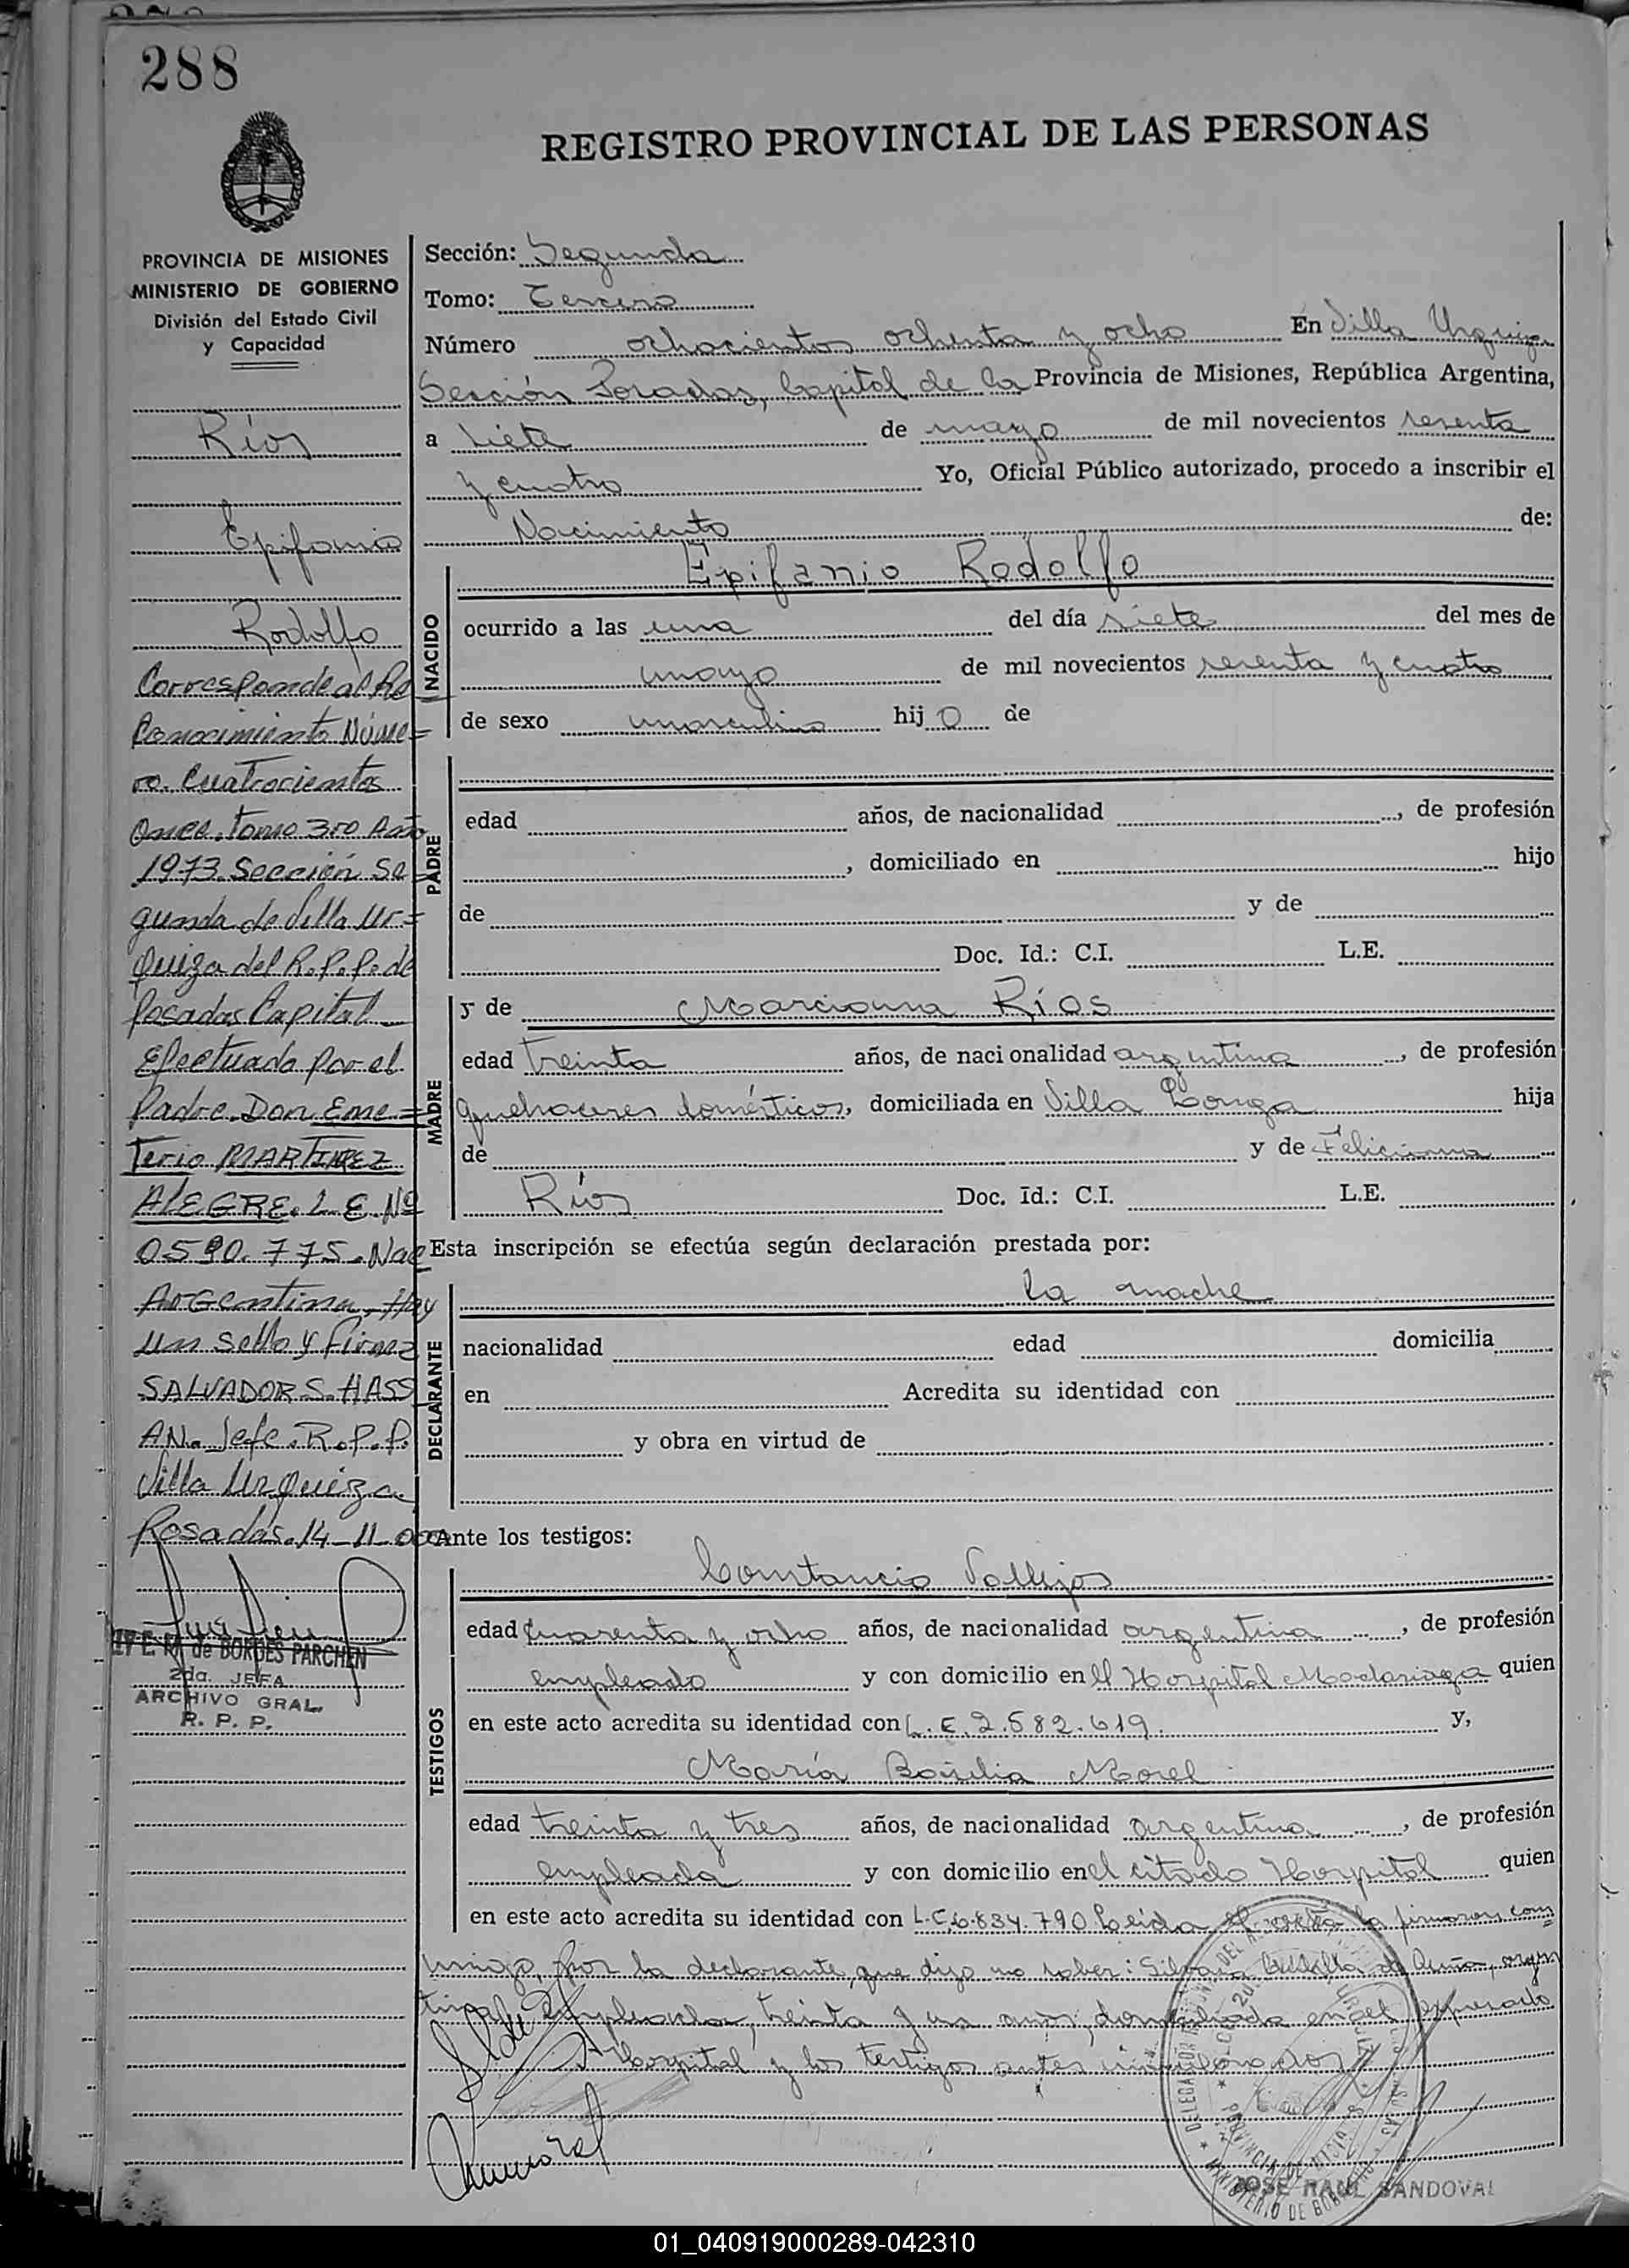 288
REGISTRO PROVINCIAL DE LAS PERSONAS
PROVINCIA DE MISIONES
MINISTERIO DE GOBIERNO
División del Estado Civil
y Capacidad
Ríos
Epifanio
Rodolfo
Corresponde al Re
conocimiento Núme=
ro. Cuatrocientos
Once. Tomo 3ro Año
1973. Sección Se=
gunda de Villa Ur=
quiza del R.P.P. de
Posadas Capital
Efectuado por el
Padre. Don Eme=
Terio MARTINEZ
ALEGRE. L.E. Nº
0590.775. Nac
Argentina. Hay
un sello y firma
SALVADOR S. HASS
AN. Jefe. R.P.P.
Villa Urquiza
Posadas. 14-11-00
E. M. de BORGES PARCHEN
2da. JEFA
ARCHIVO GRAL.
R. P. P.
Sección: Segunda
Tomo: Tercero
Número ochocientos ochenta y ocho En Villa Urquiza
Sección Posadas, Capital de la Provincia de Misiones, República Argentina,
a siete de mayo de mil novecientos sesenta
y cuatro Yo, Oficial Público autorizado, procedo a inscribir el
Nacimiento de:
NACIDO
Epifanio Rodolfo
ocurrido a las una del día siete del mes de
mayo de mil novecientos sesenta y cuatro
de sexo masculino hijo de
PADRE
edad años, de nacionalidad , de profesión
, domiciliado en hijo
de y de
Doc. Id.: C.I. L.E.
MADRE
y de Marciana Ríos
edad treinta años, de nacionalidad argentina , de profesión
quehaceres domésticos, domiciliada en Villa Longa hija
de y de Feliciana
Ríos Doc. Id.: C.I. L.E.
Esta inscripción se efectúa según declaración prestada por:
DECLARANTE
la madre
nacionalidad edad domicilia
en Acredita su identidad con
y obra en virtud de
Ante los testigos:
TESTIGOS
Constancio Vallejos
edad cuarenta y ocho años, de nacionalidad argentina , de profesión
empleado y con domicilio en el Hospital Madariaga quien
en este acto acredita su identidad con L.E. 2.582.619. y,
María Basilia Morel
edad treinta y tres años, de nacionalidad argentina , de profesión
empleada y con domicilio en el citado Hospital quien
en este acto acredita su identidad con L.C. 6.834.790 Leída el acta la firmaron con
migo, por la declarante, que dijo no saber: Silvana de argen
tina, empleada, treinta y un años, domiciliada en el expresado
Hospital y los testigos antes
JOSE RAUL SANDOVAL
01_040919000289-042310